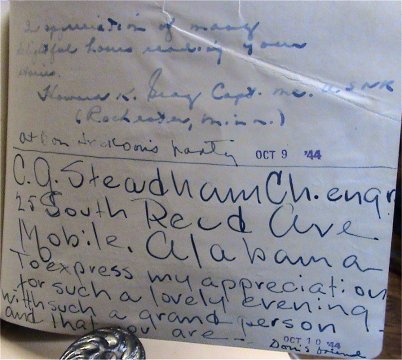 appreciation of many
delightful hours reading your
Howard K. Gray Capt. mc. USNR
(Rochester, minn.)
at Don Jackson's party OCT 9 '44
C.G. Steadham Ch. engr
25 South Reed Ave
Mobile. Alabama
To express my appreciation
for such a lovely evening
with such a grand person -
and that you are - OCT 10 '44
Don's friend